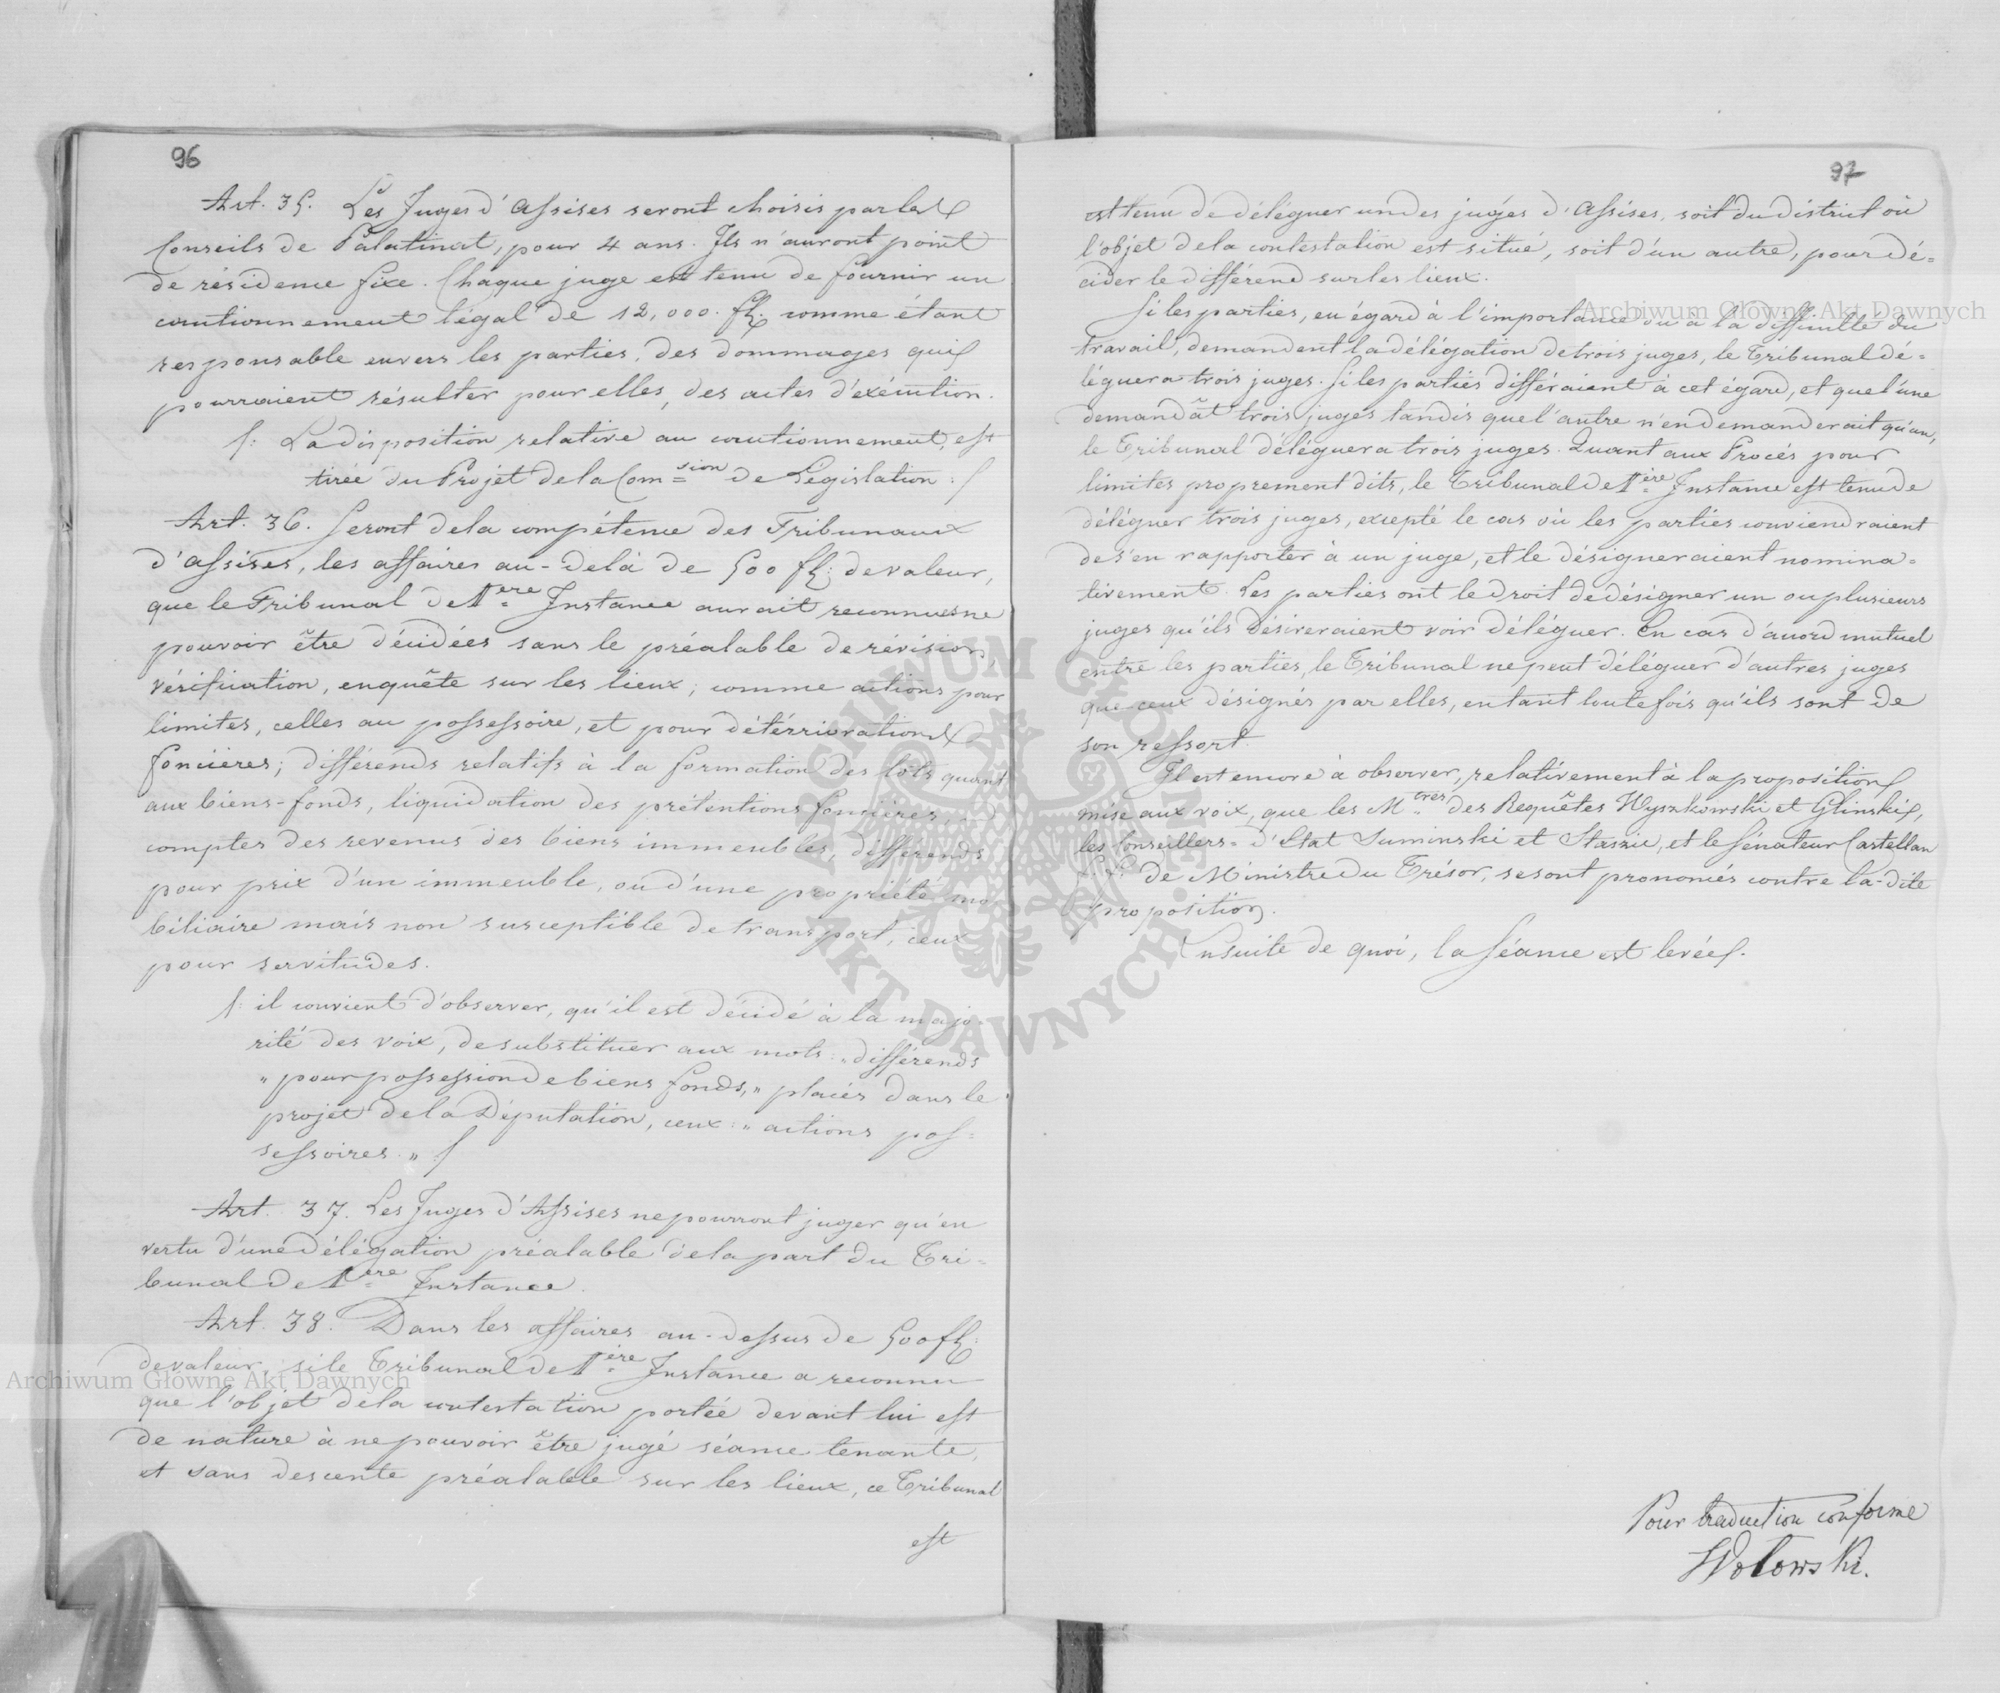 96
Art. 35. Les Juges d'Assises seront choisis par les
Conseils de Palatinat, pour 4 ans. Ils n'auront point
de résidence fixe. Chaque juge est tenu de fournir un
cautionnement légal de 12,000. fl. comme étant
responsable envers les parties, des dommages qui
pourraient résulter pour elles, des actes d'exécution.
/: La disposition relative au cautionnement, est
tirée du Projet de la Com=sion de Législation :/
Art. 36. Seront de la compétence des Tribunaux
d'Assises, les affaires au-delà de 500 fl: de valeur,
que le Tribunal de 1ère Instance aurait reconnues ne
pouvoir être décidées sans le préalable de révision,
vérification, enquête sur les lieux; comme actions pour
limites, celles au possessoire, et pour détériorations
foncières; différends relatifs à la formation des lots quant
aux biens-fonds, liquidation des prétentions foncières,
comptes des revenus des biens immeubles, différends
pour prix d'un immeuble, ou d'une propriété mo-
biliaire mais non susceptible de transport, ceux
pour servitudes.
/: il convient d'observer, qu'il est décidé à la majo-
rité des voix, de substituer aux mots: „différends
„pour possession de biens fonds,„ placés dans le
projet de la Députation, ceux: „actions pos=
sessoires.„ :/
Art. 37. Les Juges d'Assises ne pourront juger qu'en
vertu d'une délégation préalable de la part du Tri-
bunal de 1ère Instance.
Art. 38. Dans les affaires au-dessus de 500 fl:
de valeur, si le Tribunal de 1ère Instance a reconnu
que l'objet de la contestation portée devant lui est
de nature à ne pouvoir être jugé séance tenante,
et sans descente préalable sur les lieux, ce Tribunal
est
97
est tenu de déléguer un des juges d'Assises, soit du district où
l'objet de la contestation est situé, soit d'un autre, pour dé=
cider le différend sur les lieux.
Si les parties, eu égard à l'importance ou à la difficulté du
travail, demandent la délégation de trois juges, le Tribunal dé=
léguera trois juges. Si les parties différaient à cet égard, et que l'une
demandât trois juges tandis que l'autre n'en demanderait qu'un,
le Tribunal déléguera trois juges. Quant aux Procès pour
limites proprement dits, le Tribunal de 1ère Instance est tenu de
déléguer trois juges, excepté le cas où les parties conviendraient
de s'en rapporter à un juge, et le désigneraient nomina=
tivement. Les parties ont le droit de désigner un ou plusieurs
juges qu'ils désireraient voir déléguer. En cas d'accord mutuel
entre les parties, le Tribunal ne peut déléguer d'autres juges
que ceux désignés par elles, en tant toutefois qu'ils sont de
son ressort.
Il est encore à observer, relativement à la proposition
mise aux voix, que les Mtres des Requêtes Wyszkowski et Glinski,
les Conseillers d'Etat Suminski et Staszic, et le Sénateur Castellan
f. f. de Ministre du Trésor, se sont prononcés contre la-dite
proposition.
Ensuite de quoi, la Séance est levée.
Pour traduction conforme
Wolowski.
Archiwum Główne Akt Dawnych
Archiwum Główne Akt Dawnych
ARCHIWUM GŁÓWNE
AKT DAWNYCH